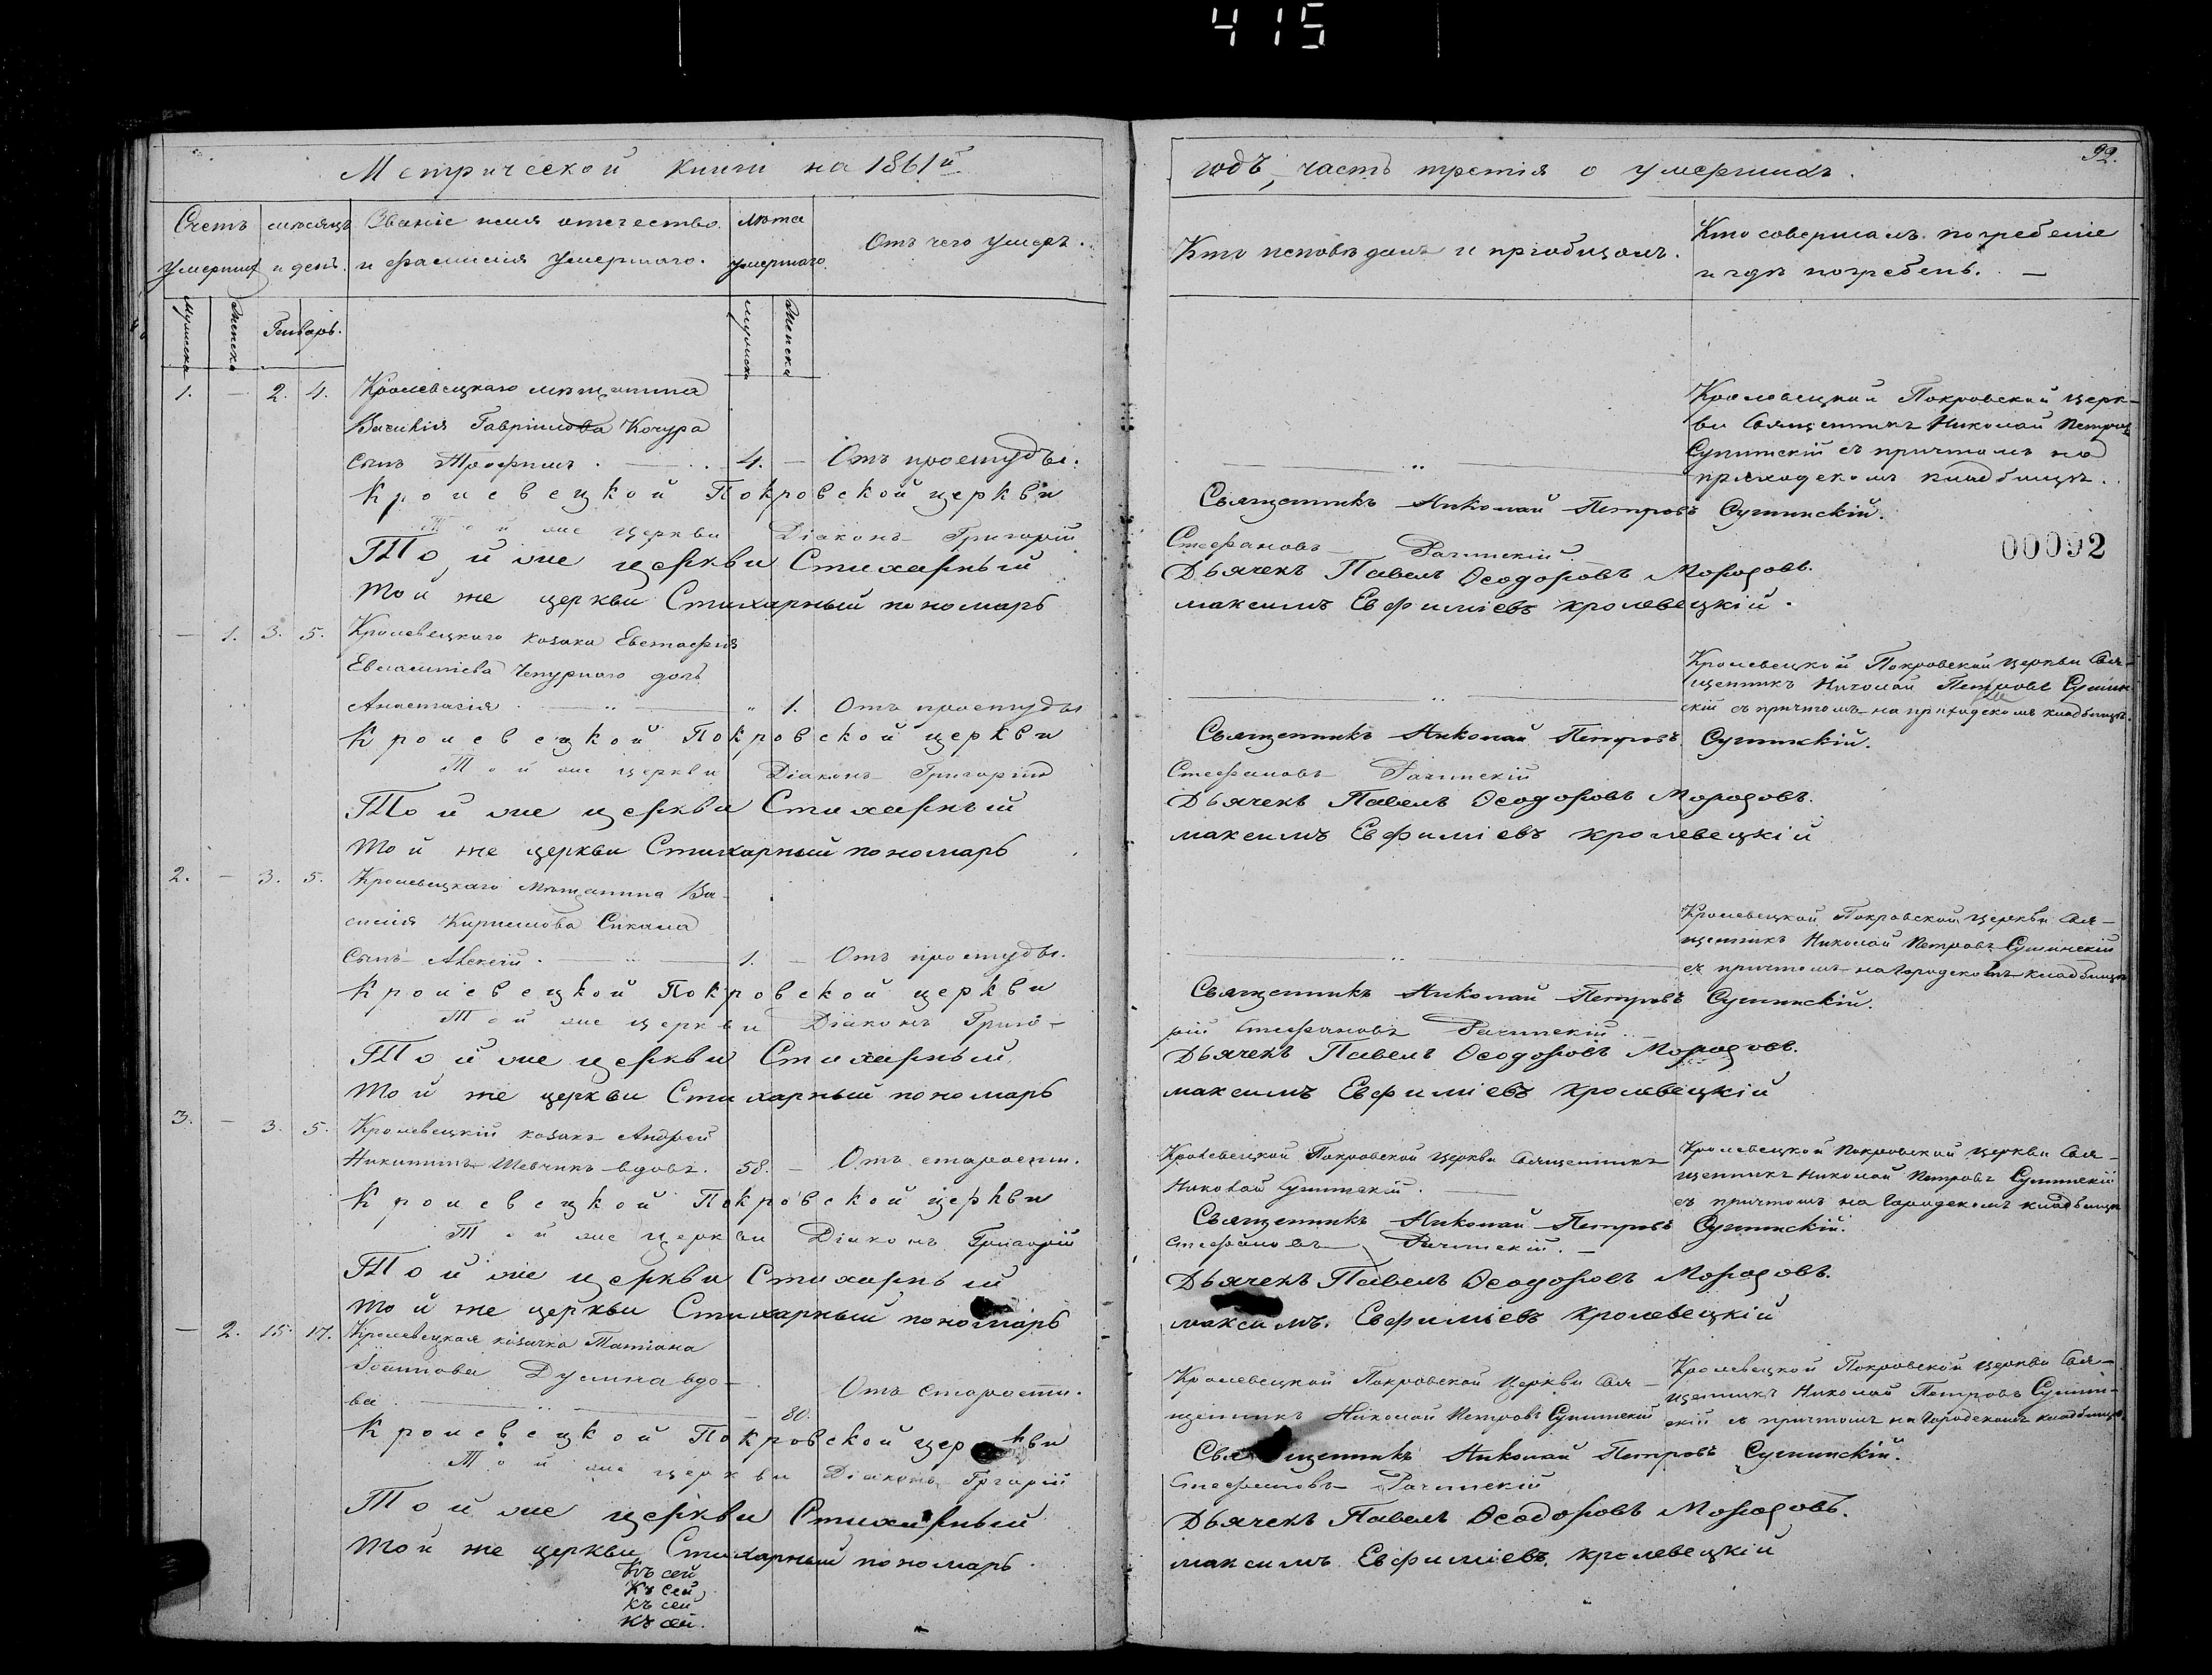 415
Метрической книги на 1861й
годъ, часть третія о умершихъ.
92.
Счетъ умершихъ
мѣсяцъ и день.
Званіе имя отечество и фамилія умершаго.
лѣта умершаго
Отъ чего умеръ.
Кто исповѣдалъ и пріобщалъ.
Кто совершалъ погребеніе и гдѣ погребенъ. —
Мужска
Женска
Генварь.
Мужска
Женска
1. — 2. 4. Кролевецкаго мѣщанина
Василія Гавріилова Кочура
сынъ Трофимъ. 4. — Отъ простуды.
Кролевецкой Покровской церк-
ви Священникъ Николай Петровъ
Сушинскій съ причтомъ на
приходскомъ кладбищѣ.
Кролевецкой Покровской церкви Священникъ Николай Петровъ Сушинскій.
Той же церкви Діаконъ Григорій Стефановъ Рачинскій.
Той же церкви Стихарный Дьячекъ Павелъ Ѳеодоровъ Морозовъ.
той же церкви Стихарный пономарь максимъ Евфиміевъ кролевецкій.
00092
— 1. 3. 5. Кролевецкаго козака Евстафія
Евлампіева Чепурного дочь
Анастасія " 1. Отъ простуды
Кролевецкой Покровской церкви Свя-
щенникъ Николай Петровъ Сушин-
скій съ причтомъ на приходскомъ кладбищѣ.
Кролевецкой Покровской церкви Священникъ Николай Петровъ Сушинскій.
Той же церкви Діаконъ Григорій Стефановъ Рачинскій
Той же церкви Стихарный Дьячекъ Павелъ Ѳеодоровъ Морозовъ.
той же церкви Стихарный пономарь максимъ Евфиміевъ кролевецкій
2. — 3. 5. Кролевецкаго мѣщанина Ва-
силія Кириллова Сикала
сынъ Алексій. 1. — Отъ простуды.
Кролевецкой Покровской церкви Свя-
щенникъ Николай Петровъ Сушинскій
съ причтомъ на Городскомъ кладбищѣ
Кролевецкой Покровской церкви Священникъ Николай Петровъ Сушинскій.
Той же церкви Діаконъ Григо-рій Стефановъ Рачинскій.
Той же церкви Стихарный Дьячекъ Павелъ Ѳеодоровъ Морозовъ.
той же церкви Стихарный пономарь максимъ Евфиміевъ кролевецкій
3. — 3. 5. Кролевецкій козакъ Андрей
Никитинъ Шевчикъ вдовъ. 58. — Отъ старости.
Кролевецкой Покровской церкви Священникъ
Николай Сушинскій.
Кролевецкой Покровской церкви Свя-
щенникъ Николай Петровъ Сушинскій
съ причтомъ на Городскомъ кладбищѣ
Кролевецкой Покровской церкви Священникъ Николай Петровъ Сушинскій.
Той же церкви Діаконъ Григорій Стефановъ Рачинскій. —
Той же церкви Стихарный Дьячекъ Павелъ Ѳеодоровъ Морозовъ.
той же церкви Стихарный пономарь максимъ. Евфиміевъ кролевецкій
— 2. 15. 17. Кролевецкая козачка Татіана
Іоаннова Думна вдо-
ва — 80. Отъ старости.
Кролевецкой Покровской Церкви Свя-
щенникъ Николай Петровъ Сушинскій
Кролевецкой Покровской Церкви Свя-
щенникъ Николай Петровъ Сушин-
скій съ причтомъ на Городскомъ кладбищѣ.
Кролевецкой Покровской церкви Священникъ Николай Петровъ Сушинскій.
Той же церкви Діаконъ Григорій Стефановъ Рачинскій
Той же церкви Стихарный Дьячекъ Павелъ Ѳеодоровъ Морозовъ.
той же церкви Стихарный пономарь. максимъ Евфиміевъ. кролевецкій
Къ сей
Къ сей
къ сей
къ сей.